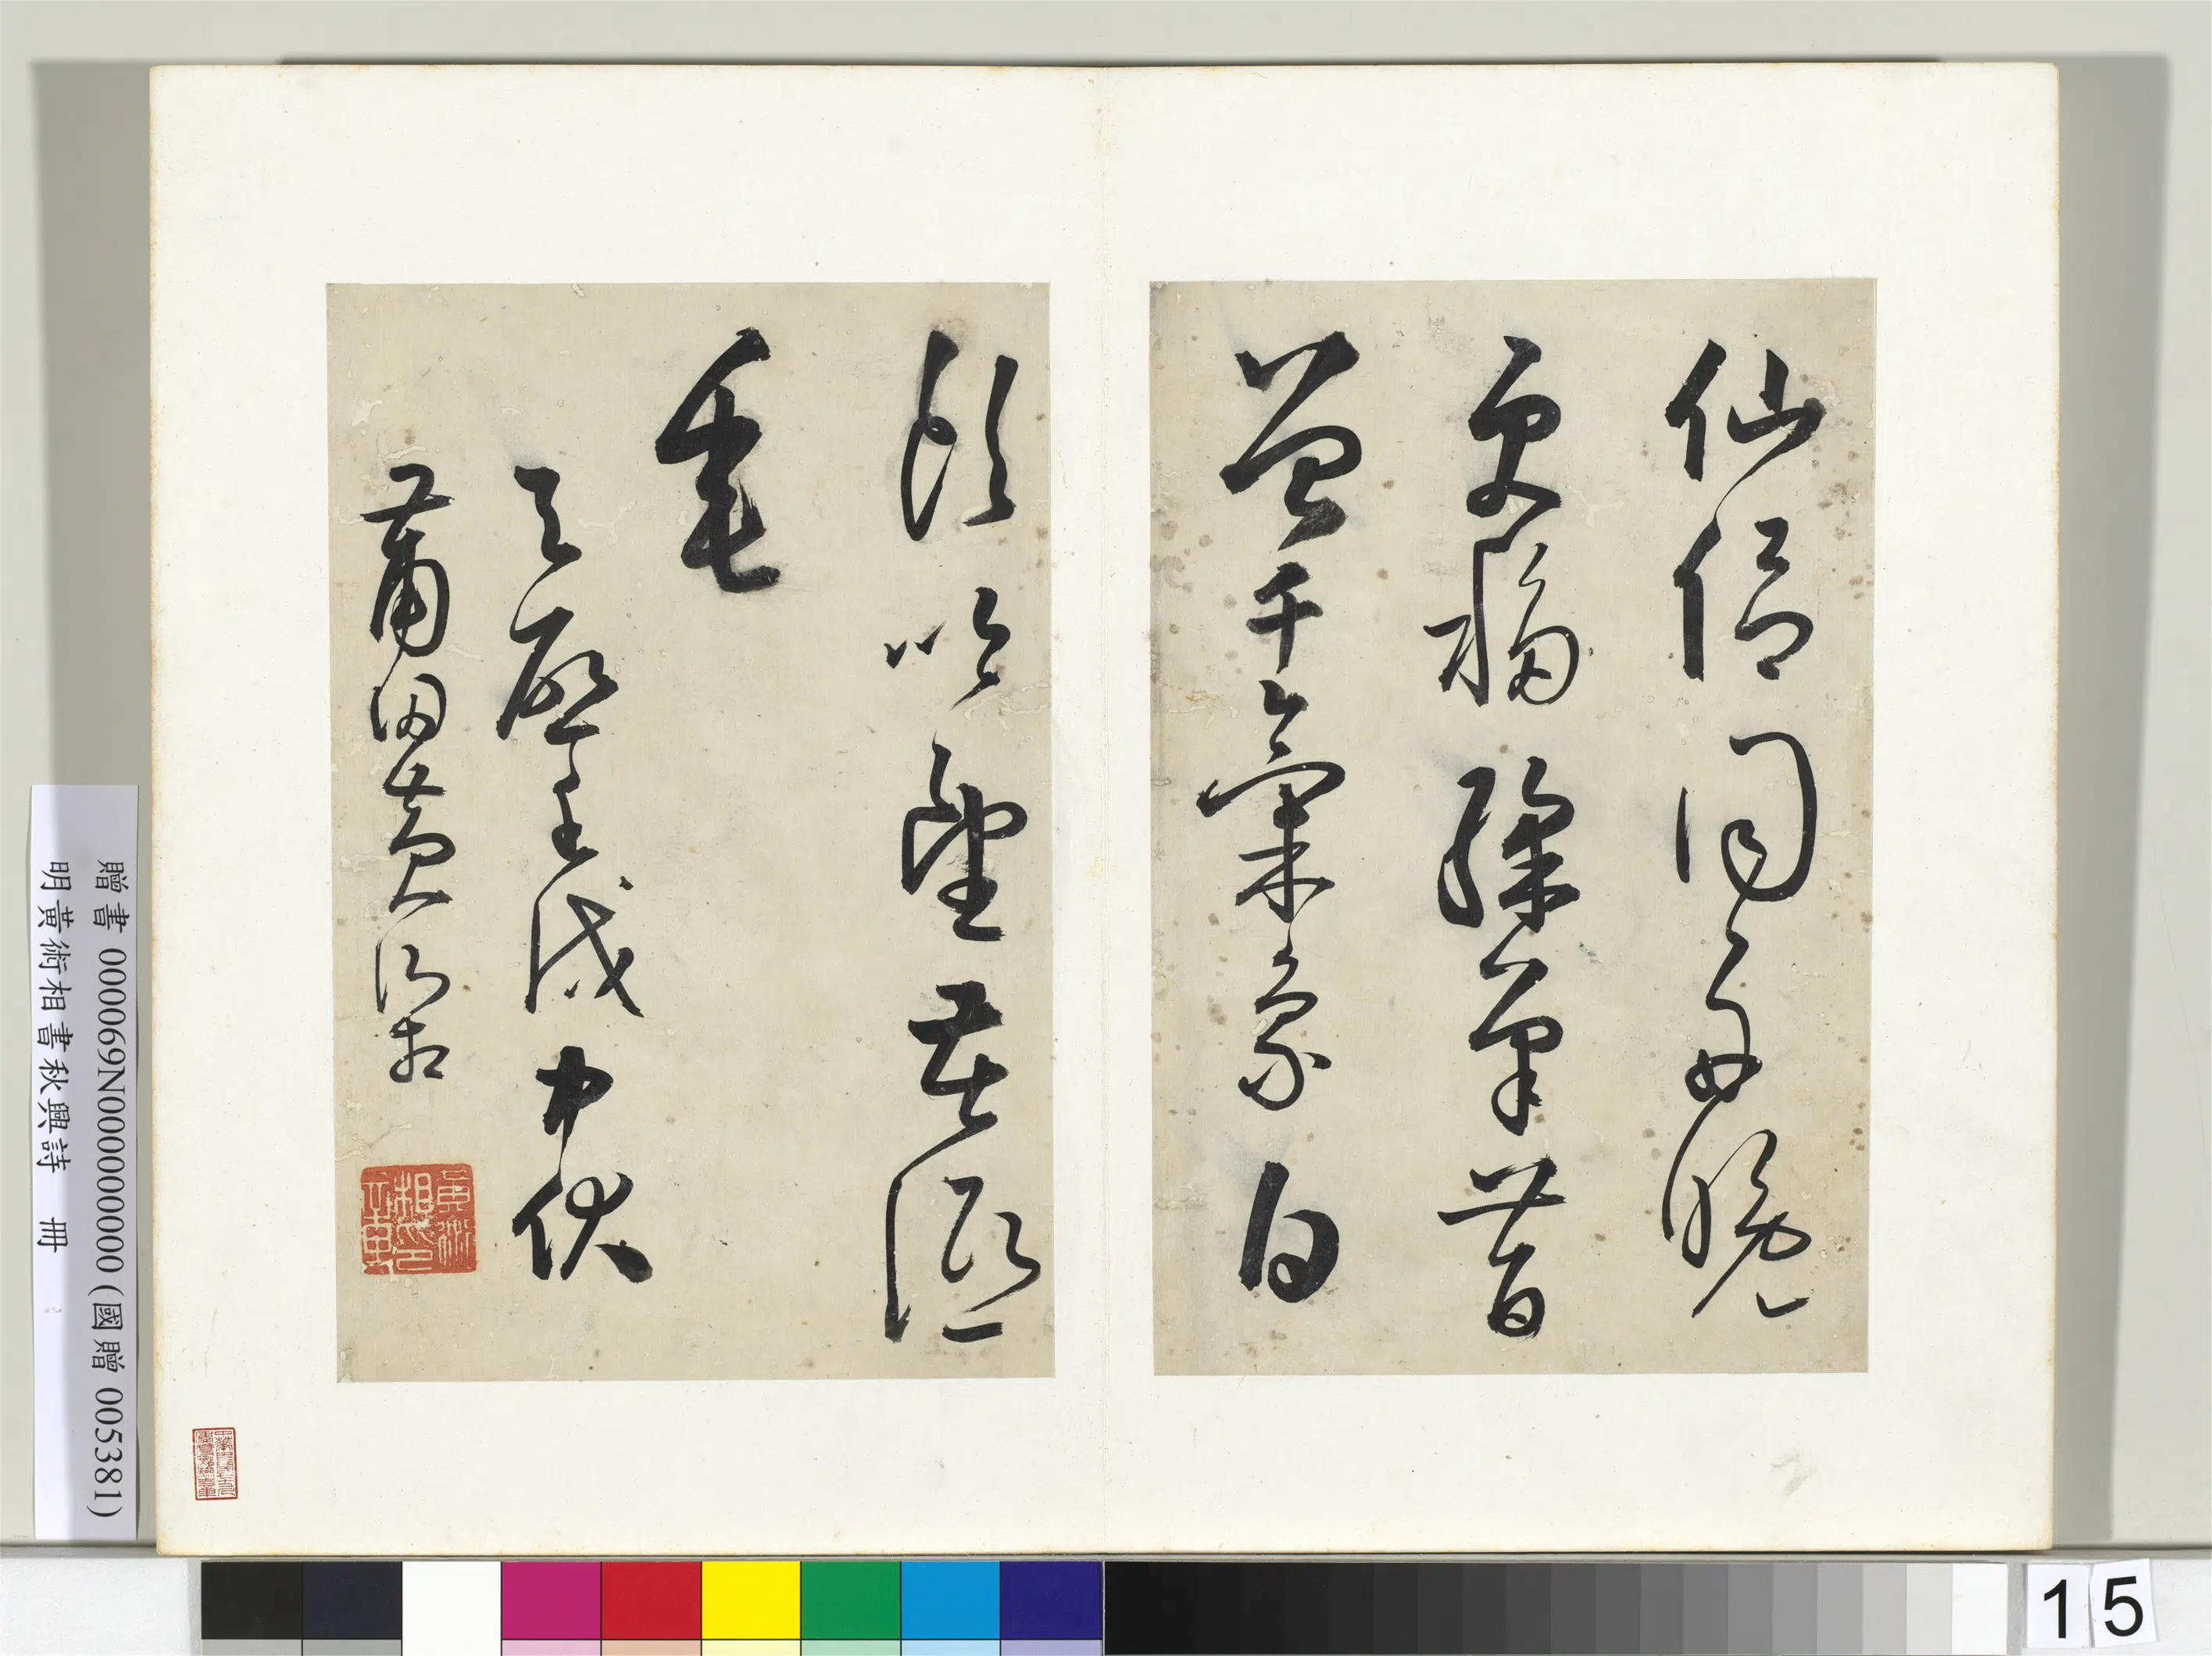 仙侶同舟晚
更移綵筆昔
曾干氣象白
頭吟望苦低
垂
天啟壬戌中伏
莆田黃衍相
贈書 000069N000000000 (國贈 005381)
明黃衍相書秋興詩 冊
15